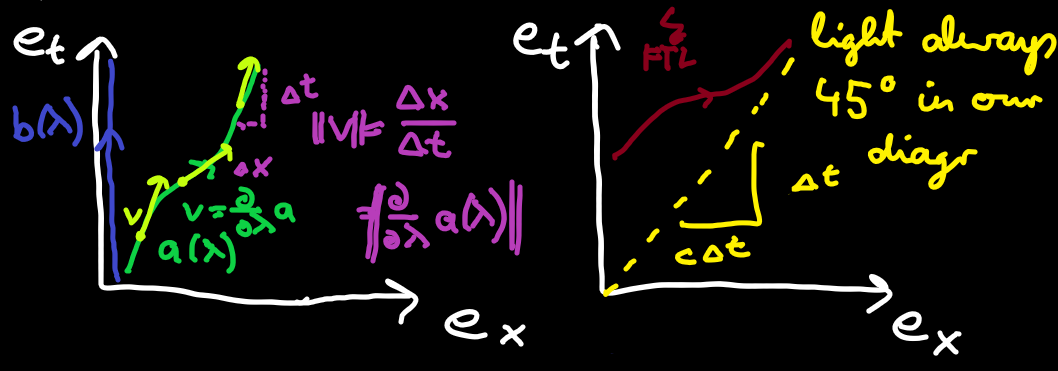 e_t
b(λ)
Δt
‖v‖= Δx/Δt
Δx
v
v = ∂/∂λ a
a(λ)
=‖∂/∂λ a(λ)‖
e_x
e_t
FTL
light always
45° in our
diagr
Δt
cΔt
e_x